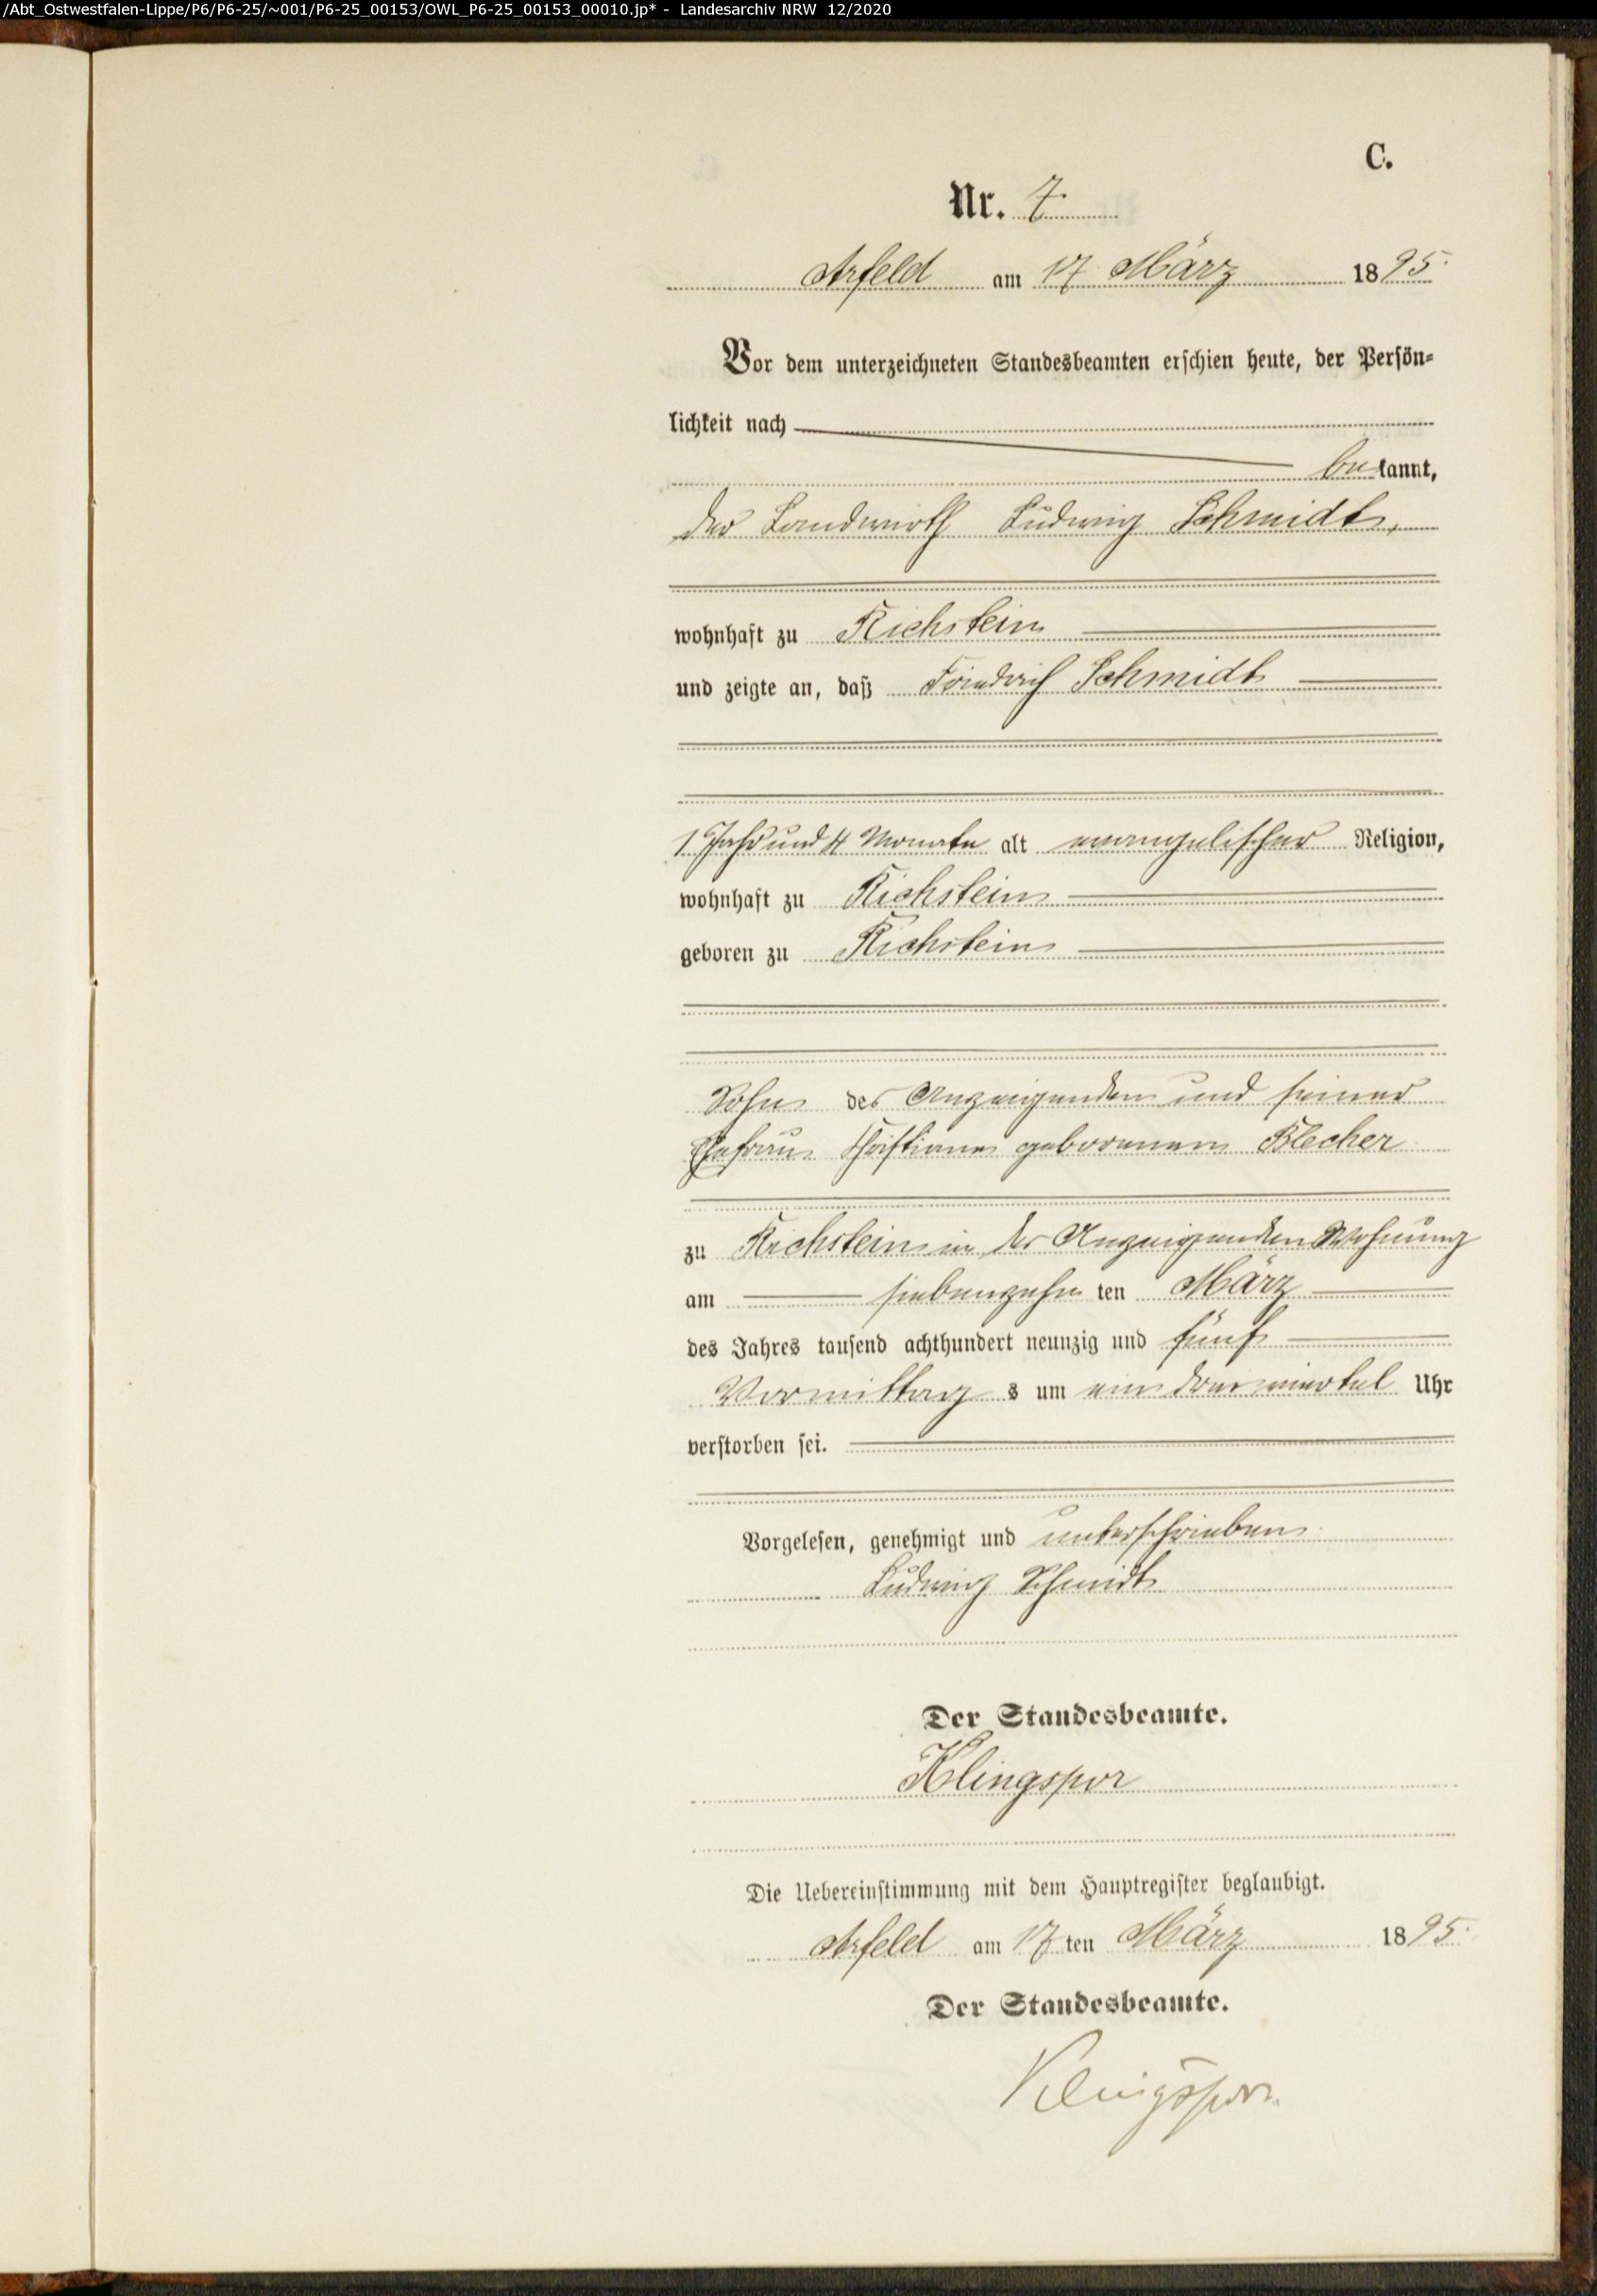 /Abt_Ostwestfalen-Lippe/P6/P6-25/~001/P6-25_00153/OWL_P6-25_00153_00010.jp* - Landesarchiv NRW 12/2020
C.
Nr. 7
Arfeld am 17 März 1895.
Vor dem unterzeichneten Standesbeamten erschien heute, der Persön-
lichkeit nach
bekannt,
der Landwirth Ludwig Schmidt,
wohnhaft zu Richstein
und zeigte an, daß Friedrich Schmidt
1 Jahr und 4 Monate alt evangelischer Religion,
wohnhaft zu Richstein
geboren zu Richstein
Sohn des Anzeigenden und seiner
Ehefrau Christiane geborenen Blecher
zu Richstein in des Anzeigenden Wohnung
am siebenzehn ten März
des Jahres tausend achthundert neunzig und fünf
Vormittag s um ein dreiviertel Uhr
verstorben sei.
Vorgelesen, genehmigt und unterschrieben
Ludwig Schmidt
Der Standesbeamte.
Klingspor
Die Uebereinstimmung mit dem Hauptregister beglaubigt.
Arfeld am 17 ten März 1895.
Der Standesbeamte.
Klingspor.